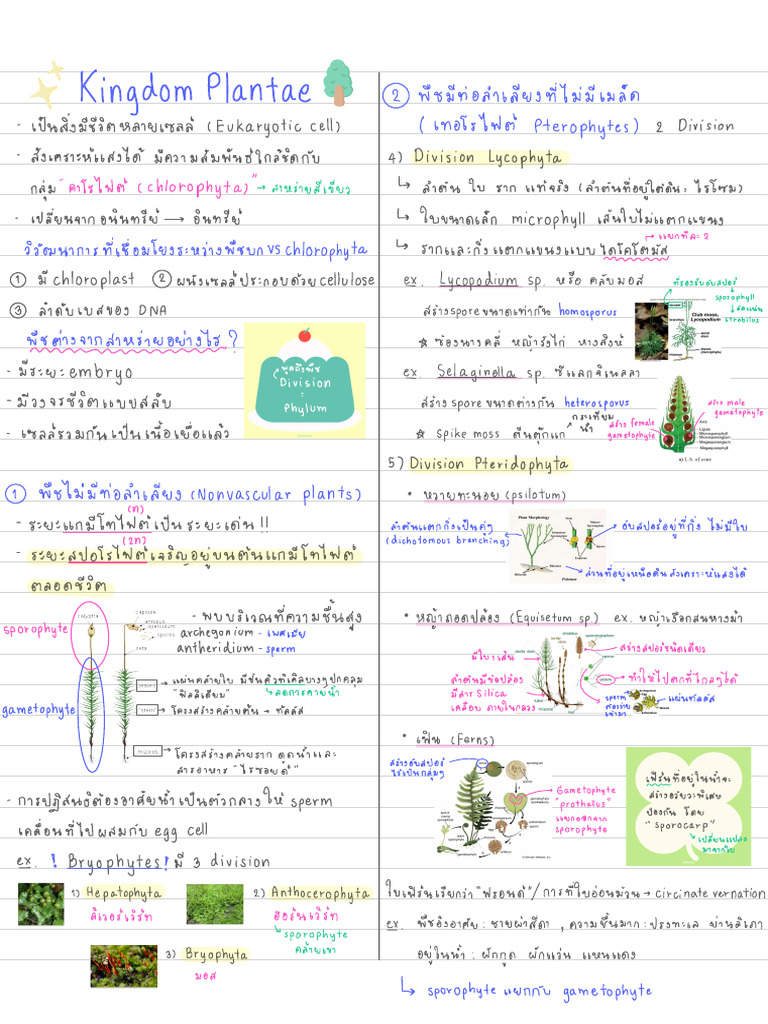 Kingdom Plantae
- เป็นสิ่งมีชีวิตหลายเซลล์ (Eukaryotic cell)
- สังเคราะห์แสงได้ มีความสัมพันธ์ใกล้ชิดกับ
กลุ่ม "คาโรไฟต์ (chlorophyta)" → สาหร่ายสีเขียว
- เปลี่ยนจากอนินทรีย์ → อินทรีย์
วิวัฒนาการที่เชื่อมโยงระหว่างพืชบก vs chlorophyta
① มี chloroplast ② ผนังเซลล์ประกอบด้วย cellulose
③ ลำดับเบสของ DNA
พืชต่างจากสาหร่ายอย่างไร ?
- มีระยะ embryo
- มีวงจรชีวิตแบบสลับ
- เซลล์รวมกันเป็นเนื้อเยื่อแล้ว
พูดถึงพืช
Division
=
Phylum
① พืชไม่มีท่อลำเลียง (Nonvascular plants)
(n)
- ระยะแกมีโทไฟต์เป็นระยะเด่น !!
(2n)
- ระยะสปอโรไฟต์เจริญอยู่บนต้นแกมีโทไฟต์
ตลอดชีวิต
sporophyte
gametophyte
calyptra
capsule
annulus
operculum
spores
seta
- พบบริเวณที่ความชื้นสูง
archegonium - เพศเมีย
antheridium - sperm
leaves → แผ่นคล้ายใบ มีชั้นคิวเทิลบางๆปกคลุม
"ฟิลลิเดียม" ↳ ลดการคายน้ำ
stem → โครงสร้างคล้ายต้น → ทัลลัส
rhizoids → โครงสร้างคล้ายราก ดูดน้ำและ
สารอาหาร "ไรซอยด์"
- การปฏิสนธิต้องอาศัยน้ำเป็นตัวกลางให้ sperm
เคลื่อนที่ไปผสมกับ egg cell
ex. ! Bryophytes ! มี 3 division
1) Hepatophyta
ลิเวอร์เวิร์ท
2) Anthocerophyta
ฮอร์นเวิร์ท
↳ sporophyte
คล้ายเขา
3) Bryophyta
มอส
② พืชมีท่อลำเลียงที่ไม่มีเมล็ด
(เทอโรไฟต์ Pterophytes) 2 Division
4) Division Lycophyta
↳ ลำต้น ใบ ราก แท้จริง (ลำต้นที่อยู่ใต้ดิน: ไรโซม)
↳ ใบขนาดเล็ก microphyll เส้นใบไม่แตกแขนง
→ แยกทีละ 2
↳ รากและกิ่งแตกแขนงแบบไดโคโตมัส
ex. Lycopodium sp. หรือ คลับมอส
สร้าง spore ขนาดเท่ากัน homosporus
☆ ช้องนางคลี่ หญ้ารังไก่ หางสิงห์
ที่รองรับอับสปอร์
sporophyll
strobilus
Club moss,
Lycopodium
ex. Selaginella sp. ซีแลกจิเนลลา
สร้าง spore ขนาดต่างกัน heterosporus
☆ spike moss ตีนตุ๊กแก กระเทียมน้ำ
สร้าง female
gametophyte
สร้าง male
gametophyte
Axis
Ligule
Microsporophyll
Microsporangium
Megasporophyll
Megasporangium
5) Division Pteridophyta
• หวายทะนอย (psilotum)
ลำต้นแตกกิ่งเป็นคู่ๆ
(dichotomous branching)
Plant Morphology
Psilotum
อับสปอร์อยู่ที่กิ่ง ไม่มีใบ
ส่วนที่อยู่เหนือดินสังเคราะห์แสงได้
• หญ้าถอดปล้อง (Equisetum sp.) ex. หญ้าเงือกสนหางม้า
มีใบ 1 เส้น
ลำต้นมีข้อปล้อง
มีสาร Silica
เคลือบ ภายในกลวง
สร้างสปอร์ชนิดเดียว
ทำให้ไปตกที่ไกลๆได้
sperm
แผ่นทัลลัส
• เฟิน (Ferns)
สร้างอับสปอร์
ไว้เป็นกลุ่มๆ
Gametophyte
"prothalus"
แยกออกจาก
sporophyte
เฟิร์นที่อยู่ในน้ำจะ
สร้างอวัยวะพิเศษ
ป้องกัน โดย
"sporocarp"
↳ เปลี่ยนแปลง
มาจากใบ
ใบเฟิร์นเรียกว่า "ฟรอนด์" / การที่ใบอ่อนม้วน → circinate vernation
ex. พืชอิงอาศัย: ชายผ้าสีดา , ความชื้นมาก: ปรงทะเล ย่านลิเภา
อยู่ในน้ำ : ผักกูด ผักแว่น แหนแดง
↳ sporophyte แยกกับ gametophyte